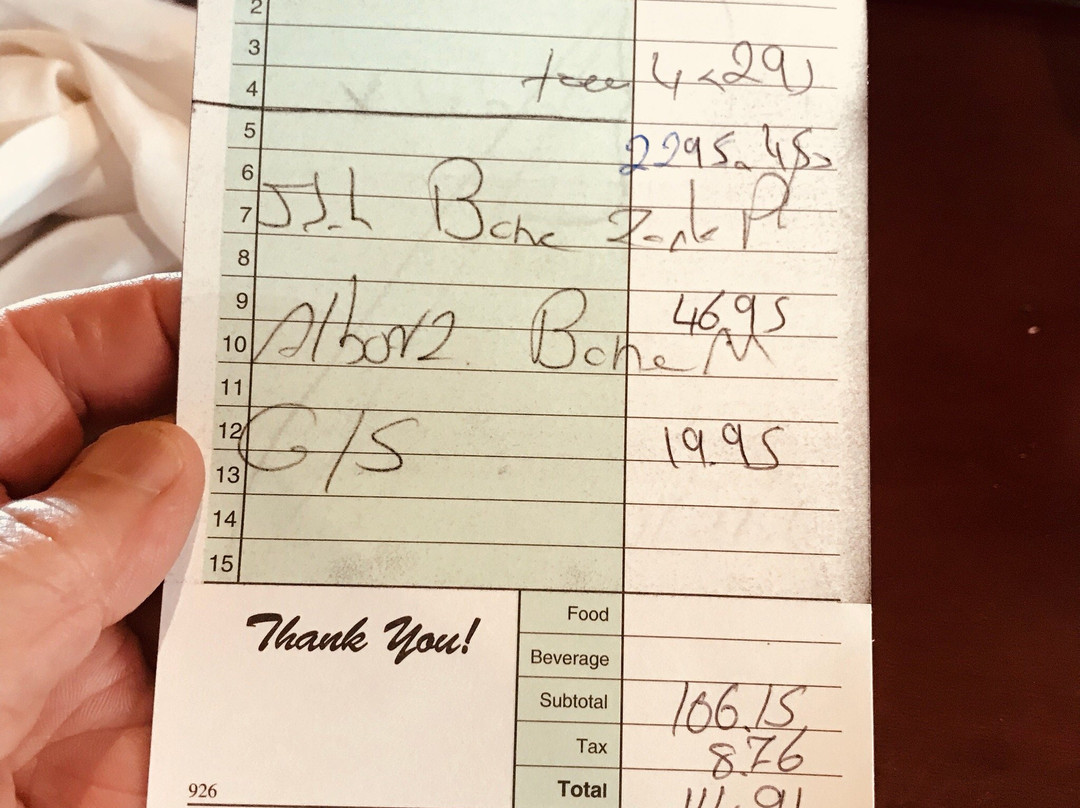 2
3
4
4 29
5
2295. 45
6
7 Bone Pl
8
9 46.95
10 Alborz Bone
11
12 G/S 19.95
13
14
15
Thank You!
Food
Beverage
Subtotal 106.15
Tax 8.76
926 Total 111.91